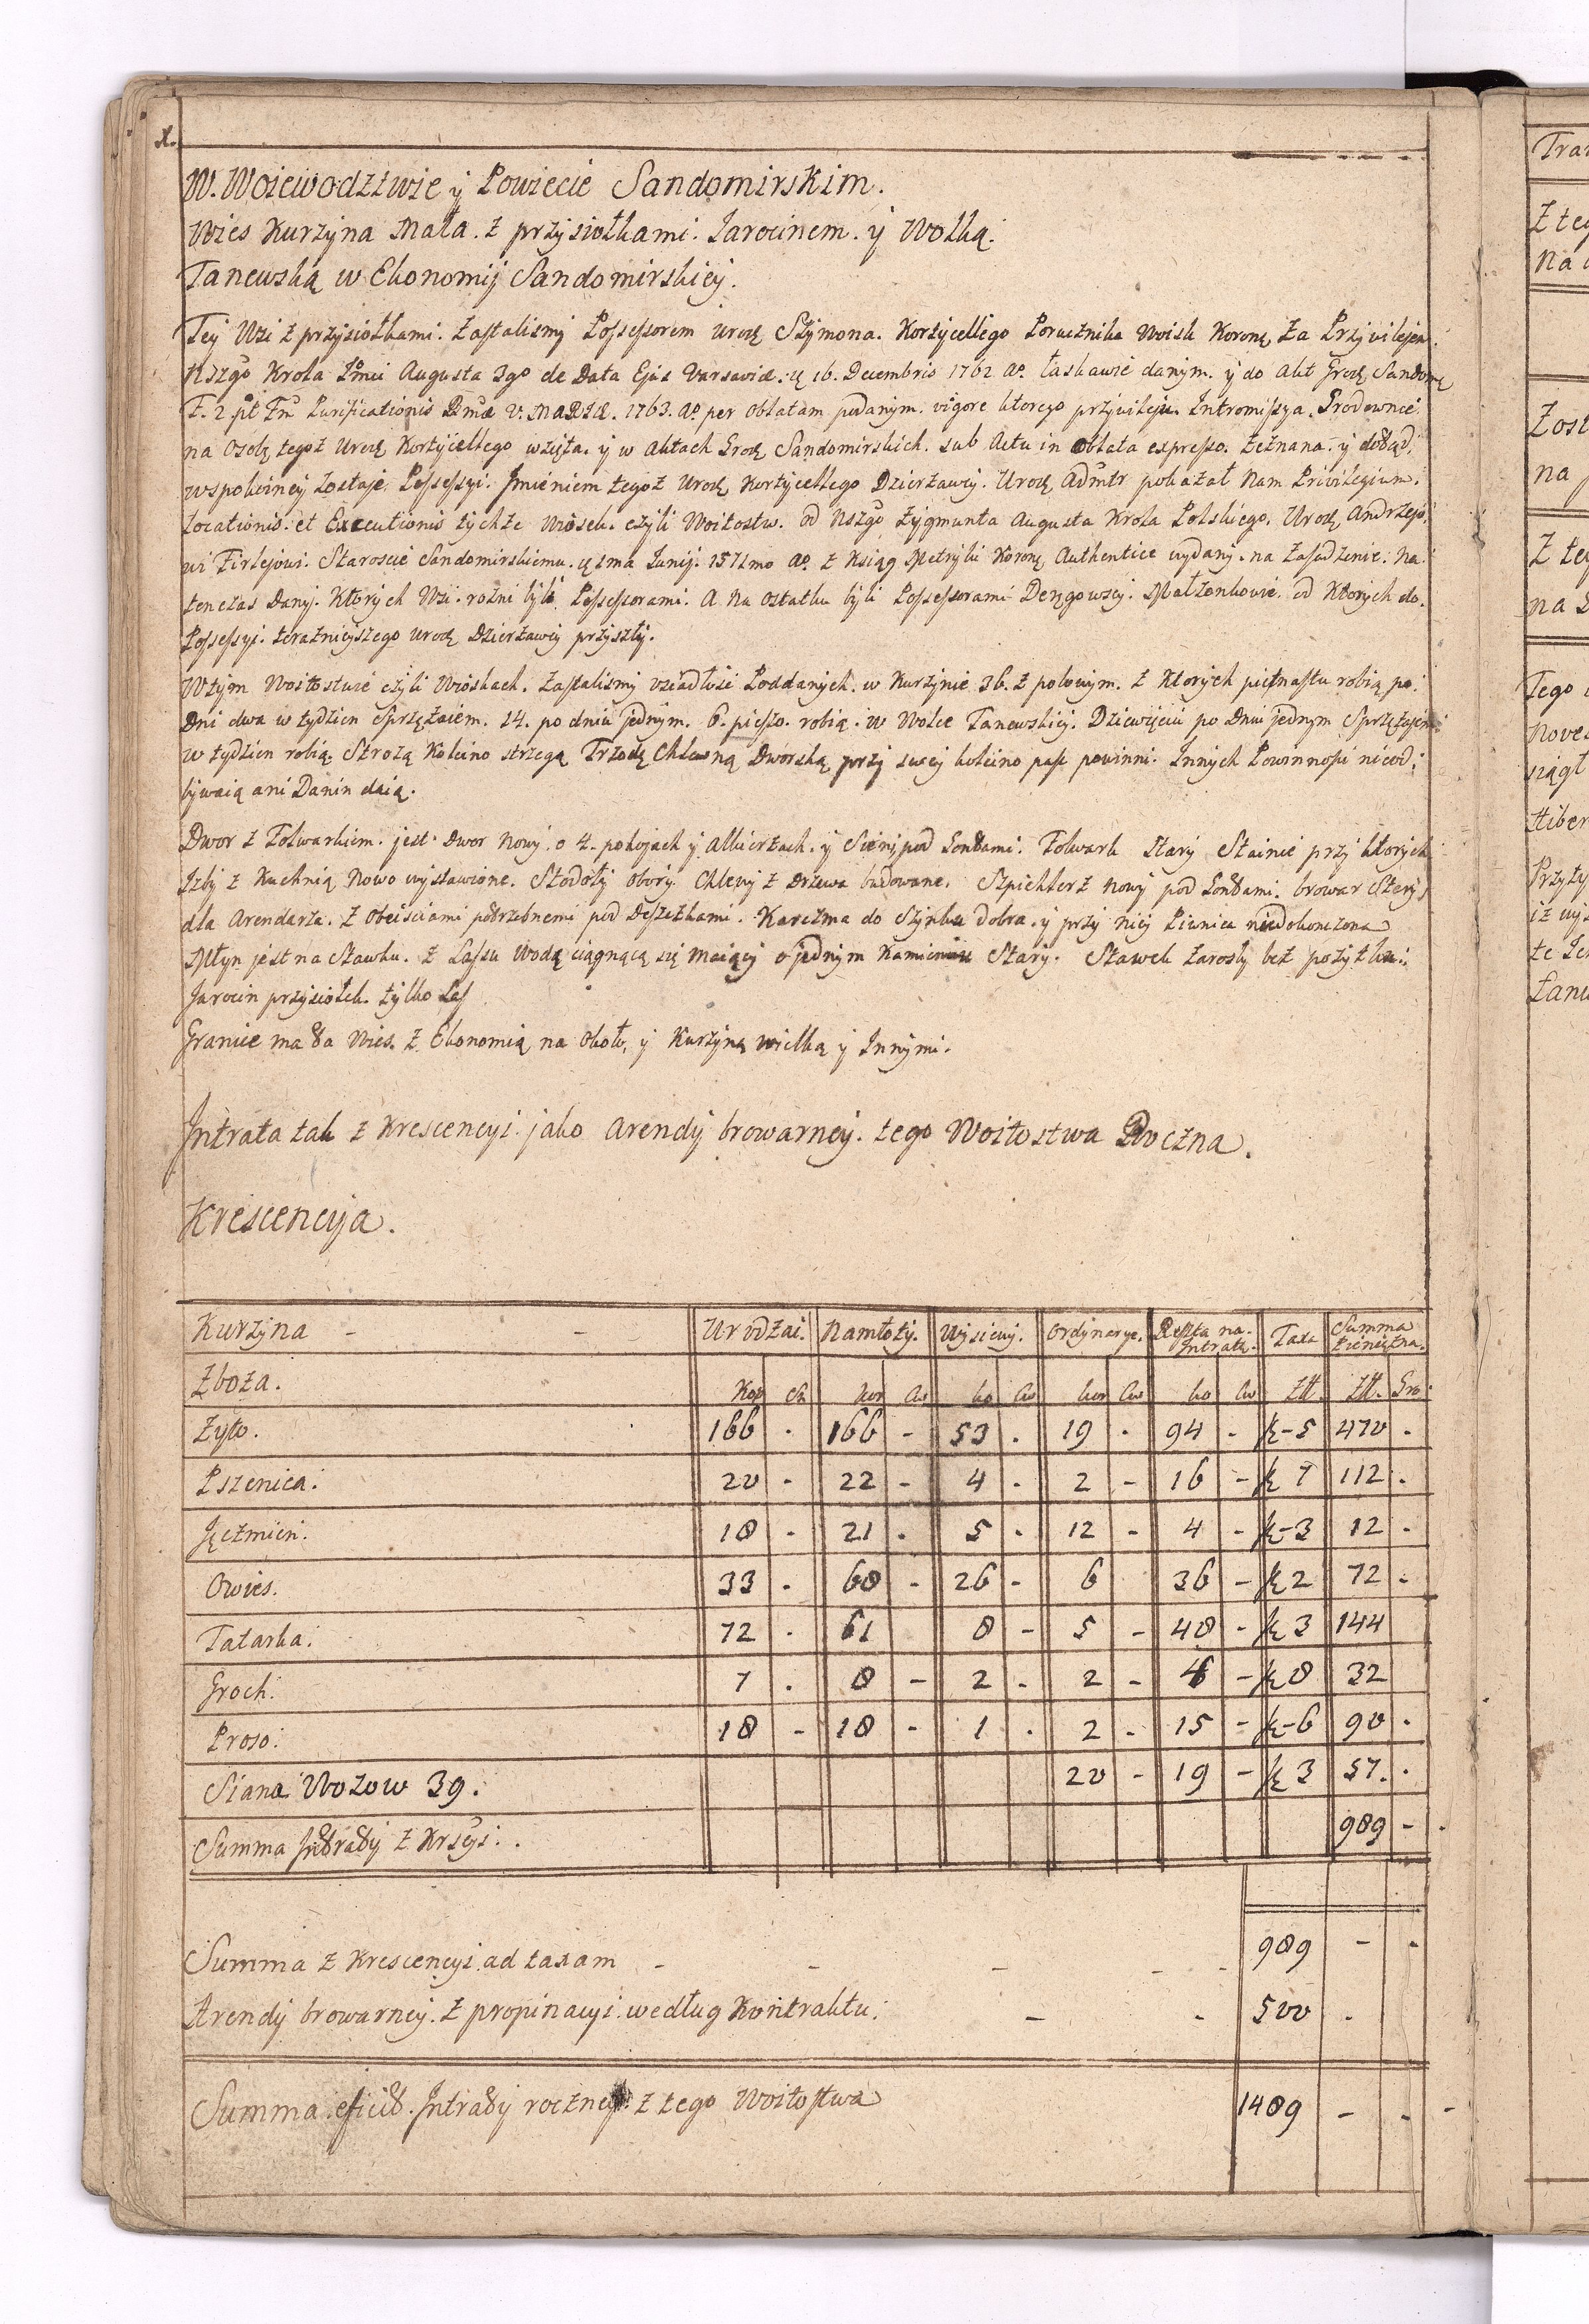 W. Woiewodztwie y Powiecie Sandomirskim.
Wies Kurzyna Mała. z przysiołkami. Jarocinem. y Wolką.
Tanewską w Ekonomij Sandomirskiey.
Tey Wsi z przysiołkami. Zastalismy Possessorem Urodz Szymona. Korzyckiego Porucznika Woisk Koronų Za Przywilejem.
Nszgo Krola Jmci Augusta 3go de Data Ejus Varsaviæ. 16. Decembris 1762 ao. łaskawie danym. y do Akt Grodz Sandom
F. 2 pt Fm Purificationis Bmæ V. MARIÆ. 1763. ao. per Oblatam podanym. vigore ktorego przywileju. Intromissya. Grodownie
na Osobę tegoż Urodz Korzyckiego wzięta. y w Aktach Grodz Sandomirskich. sub Actu in Oblata expresso. Zeznana. y dotąd.
w spokoiney zostaje. Possessyi. Imieniem tegoż Urodz Korzyckiego Dzierżawcy. Urodz Admtr pokazał Nam Privilegium.
Locationis. et Executionis tychże Wiosek. czyli Woitostw. od Nszgo Zygmunta Augusta Krola Polskiego. Urodz Andrzejo
wi Firlejowi. Staroscie Sandomirskiemu. 1ma Junij. 1571mo ao. z Ksiąg Metryki Koronų Authentice wydany. na Zasadzenie. Na
tenczas Dany. Ktorych Wsi. rożni byli Possessorami. A Na Ostatku byli Possessorami Deręgowscy. Małżonkowie. od Ktorych do.
Possessyi. teraznieyszego Urodz Dzierżawcy przyszły.
W tym Woitostwie czyli Wioskach. Zastalismy osiadłosci Poddanych. w Kurzynie 36. z połowym. z Ktorych piętnastu robią po
Dni dwa w tydzien Sprzężaiem. 14. po dniu jednym. 6. pieszo. robią. w Wolce Tanewskiey. Dziewięciu po Dniu jednym Sprzężajem
w tydzien robią. Strożą Koleino strzegą Trzodę Chlewną Dworską przy swey koleino paść powinni. Innych Powinnosci nieod
bywaią ani Danin daią.
Dwor z Folwarkiem. jest. Dwor Nowy. o 4. pokojach y Alkierzach. y Sieni, pod Gontami. Folwark Stary Stainie przy ktorych
Izby z Kuchnią Nowo wystawione. Stodoły Obory Chlewy z drzewa budowane. Szpichlerz Nowy pod Gontami. browar Stery
dla Arendarza. z Obeisciami potrzebnemi pod Deszczkami. Karczma do Szynku dobra. y przy niey Piwnica niedokonczona
Młyn jest na Stawku. z Lassu Wodę ciągnącą się maiący o jednym Kamieniu Stary. Stawek zarosły bez pożytku.
Jarocin przysiołek. tylko Las
Granice ma ta Wies. z Ekonomią na Około, y Kurzyną wielką y Innymi.
Intrata tak z Krescencyi. jako Arendy browarney. tego Woitostwa Roczna.
Krescencyja.
Kurzyna - - Urodzai. Namłoty. Wysiewy. Ordynarye. Reszta na Intratę. Taxa Summa Pieniężna.
Zboża. Kop Sn kor Cw ko Cw kor Cw ko Cw Zł. Zł. Gro
Żyto. 166 . 166 - 53 . 19 . 94 - 5 470 .
Pszenica. 20 - 22 - 4 . 2 - 16 - 7 112 .
Jęczmień. 18 . 21 . 5 . 12 - 4 - 3 12 .
Owies. 33 . 68 - 26 - 6 36 - 2 72 .
Tatarka. 72 . 61 8 - 5 - 48 - 3 144
Groch. 7 . 8 - 2 . 2 - 4 - 8 32
Proso. 18 - 18 - 1 . 2 . 15 - 6 90 .
Siana Wozow 39. 20 - 19 - 3 57. .
Summa Intraty z Krscyi. . 989 -
Summa z Krescencyi ad taxam - - - - - 989 - .
Arendy browarney. z propinacyi. według Kontraktu. - - 500 .
Summa. efficit. Intraty roczney. z tego Woitostwa 1489 - . -